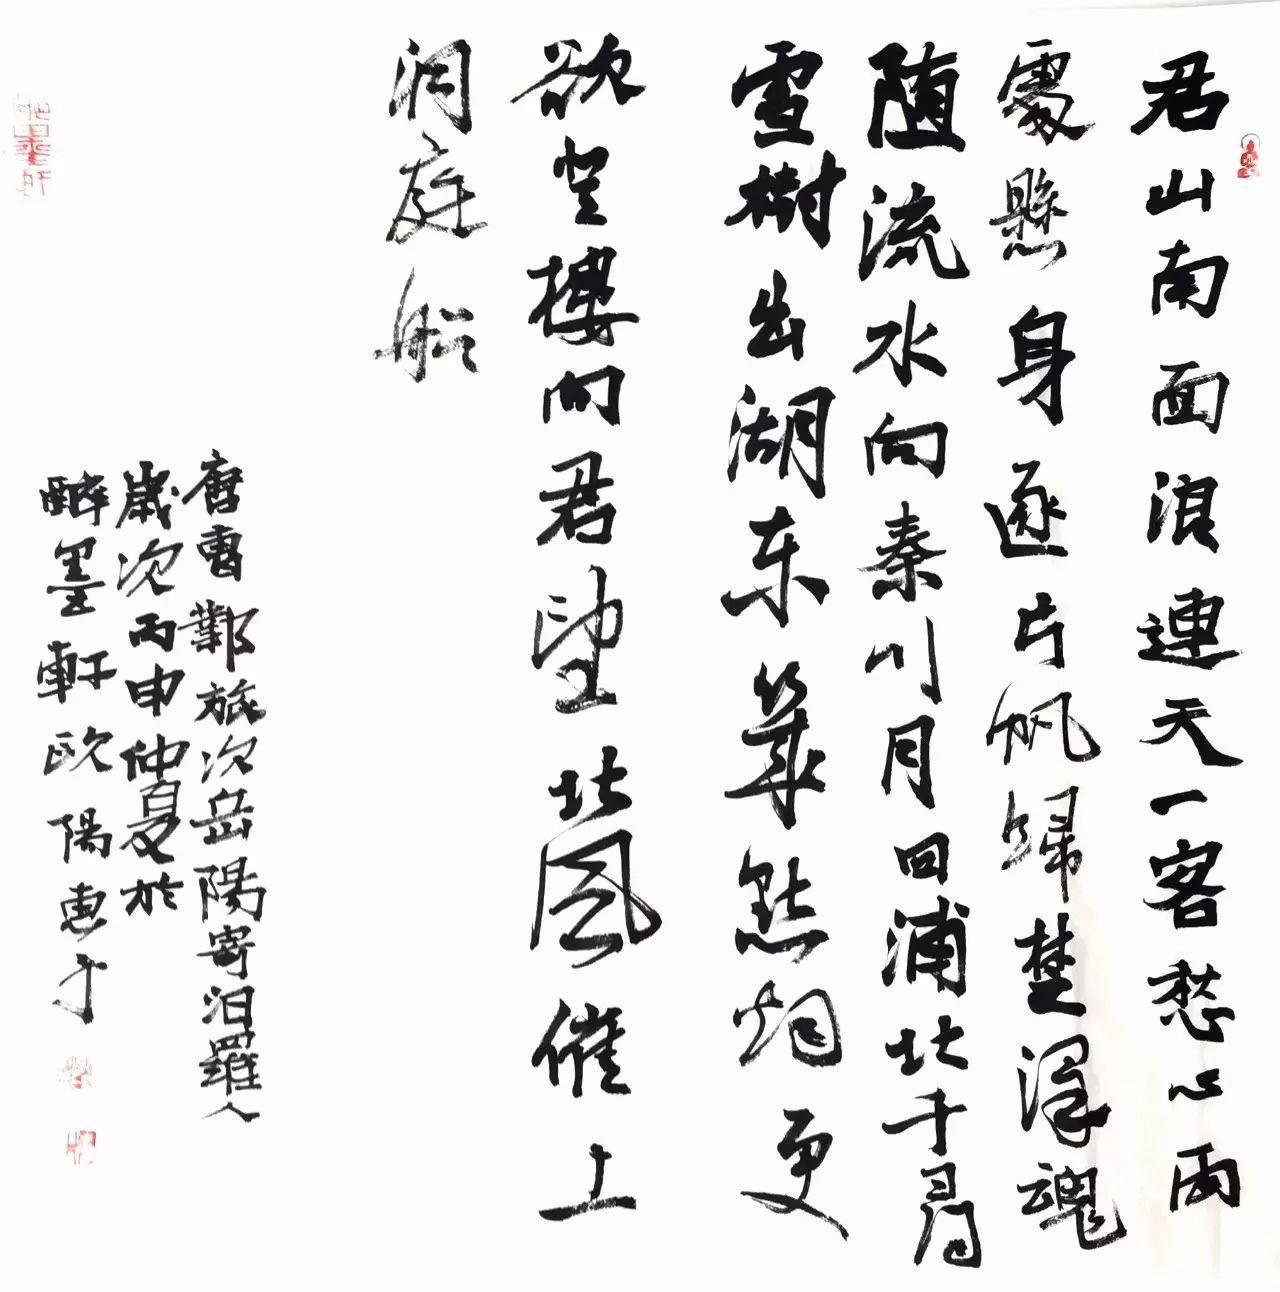 君山南面浪連天一客愁心兩
處懸身逐片帆歸楚澤魂
随流水向秦川月回浦北千尋
雪樹出湖东萬點烟更
欲登樓向君望北風催上
洞庭船
唐曹鄴旅次岳陽寄汨羅人
歲次丙申仲夏於
醉墨軒欧陽惠
醉墨軒